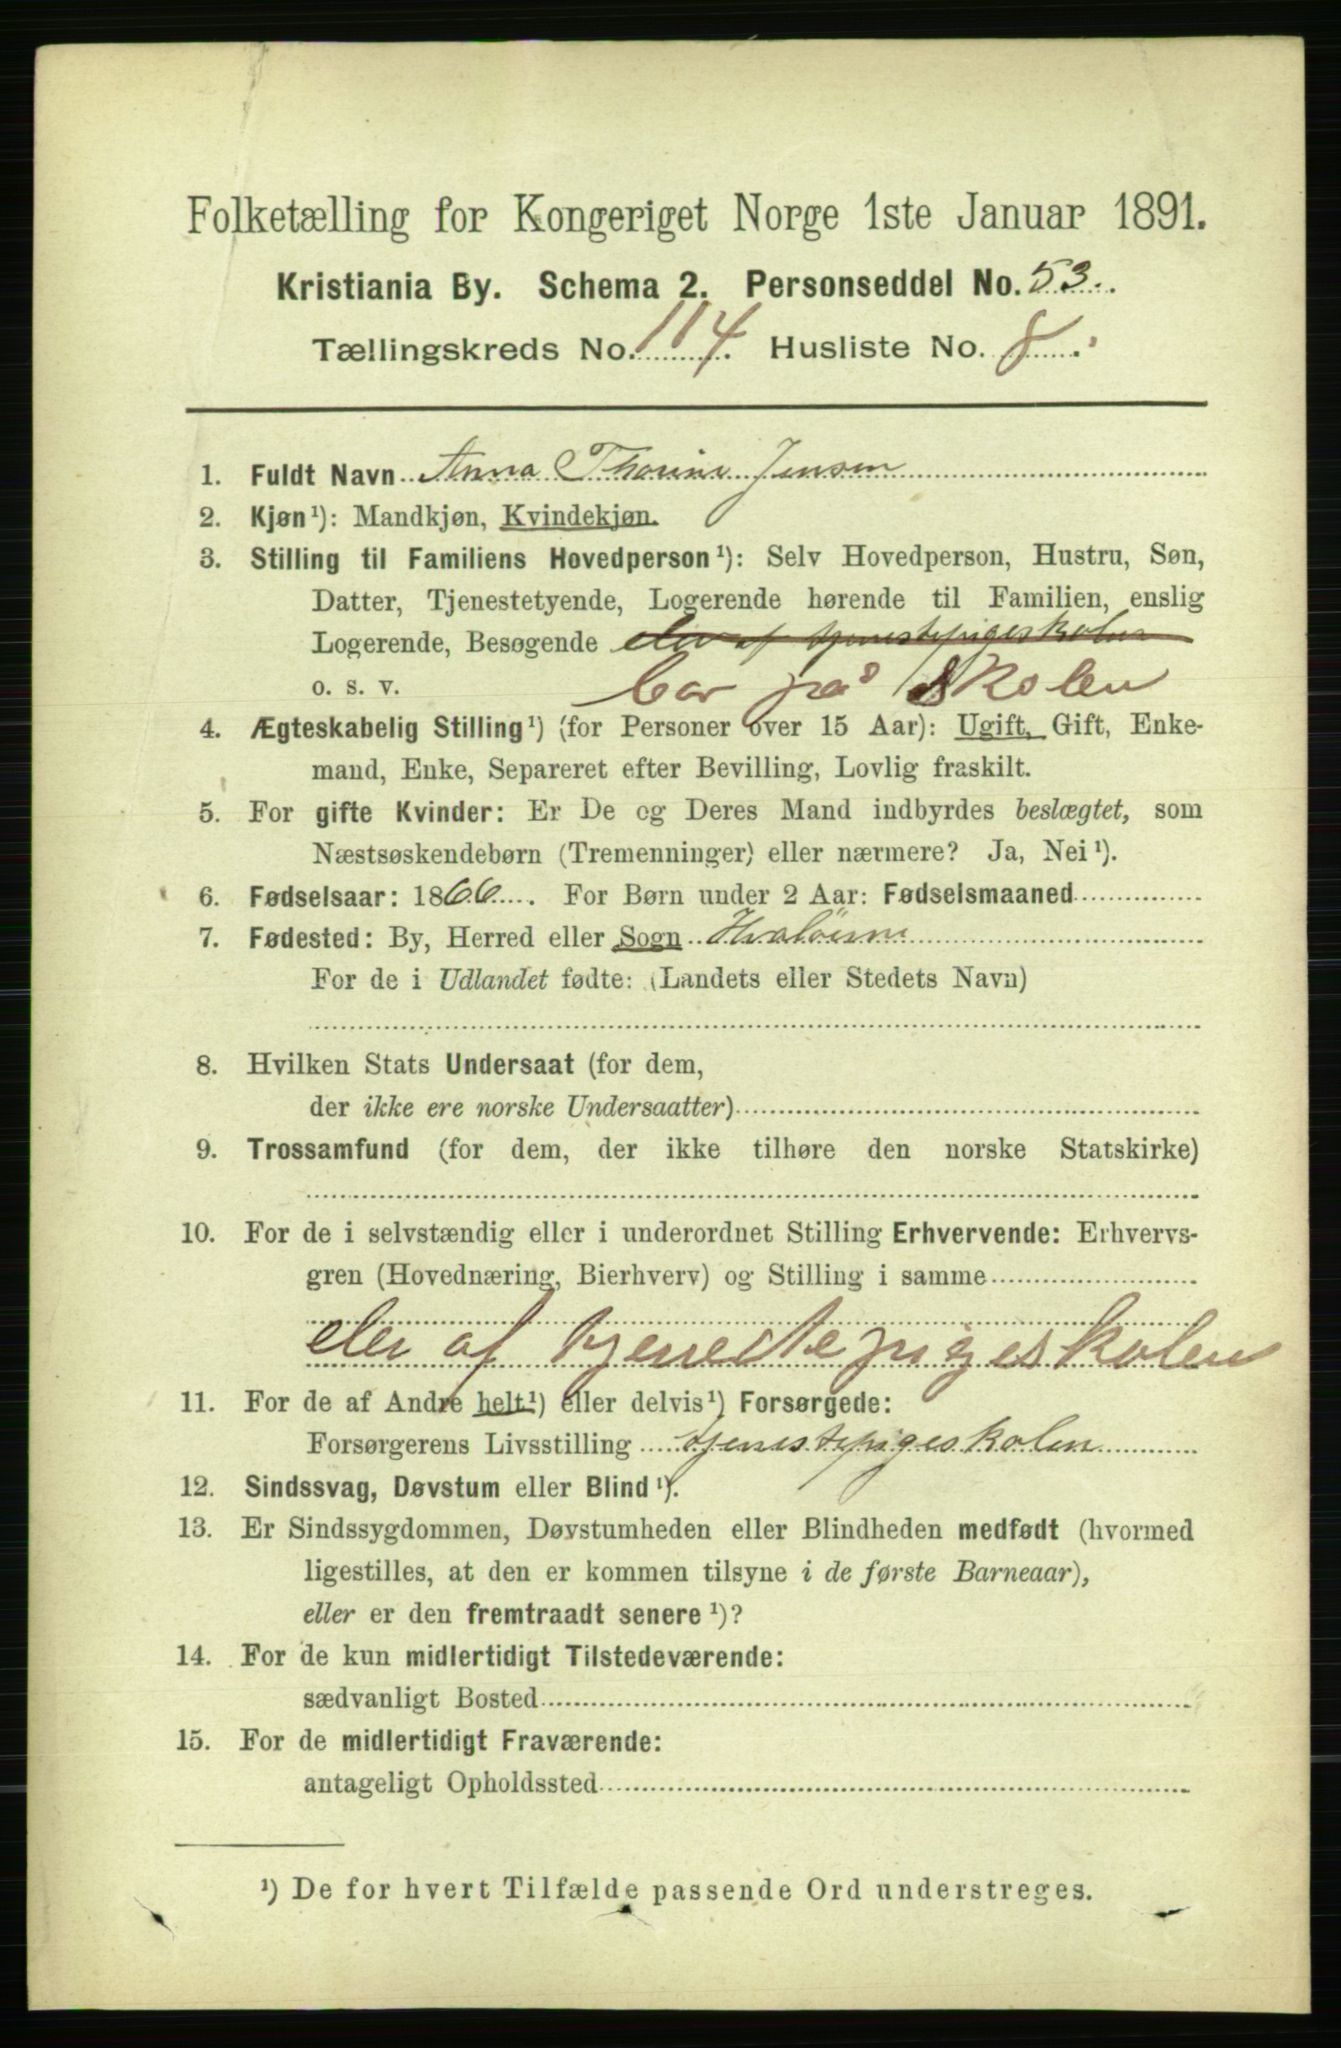 Folketælling for Kongeriget Norge 1ste Januar 1891.
Kristiania By. Schema 2. Personseddel No. 53.
Tællingskreds No. 114. Husliste No. 8.
1. Fuldt Navn Anna Thorine Jensen
2. Kjøn¹): Mandkjøn, Kvindekjøn.
3. Stilling til Familiens Hovedperson¹): Selv Hovedperson, Hustru, Søn,
Datter, Tjenestetyende, Logerende hørende til Familien, enslig
Logerende, Besøgende elev af tjenestepigeskolen
o. s. v. bor på skolen
4. Ægteskabelig Stilling¹) (for Personer over 15 Aar): Ugift, Gift, Enke-
mand, Enke, Separeret efter Bevilling, Lovlig fraskilt.
5. For gifte Kvinder: Er De og Deres Mand indbyrdes beslægtet, som
Næstsøskendebørn (Tremenninger) eller nærmere? Ja, Nei¹).
6. Fødselsaar: 1866. For Børn under 2 Aar: Fødselsmaaned
7. Fødested: By, Herred eller Sogn Hvaløerne
For de i Udlandet fødte: (Landets eller Stedets Navn)
8. Hvilken Stats Undersaat (for dem,
der ikke ere norske Undersaatter)
9. Trossamfund (for dem, der ikke tilhøre den norske Statskirke)
10. For de i selvstændig eller i underordnet Stilling Erhvervende: Erhvervs-
gren (Hovednæring, Bierhverv) og Stilling i samme
elev af tjenestepigeskolen
11. For de af Andre helt¹) eller delvis¹) Forsørgede:
Forsørgerens Livsstilling tjenestepigeskolen
12. Sindssvag, Døvstum eller Blind¹).
13. Er Sindssygdommen, Døvstumheden eller Blindheden medfødt (hvormed
ligestilles, at den er kommen tilsyne i de første Barneaar),
eller er den fremtraadt senere¹)?
14. For de kun midlertidigt Tilstedeværende:
sædvanligt Bosted
15. For de midlertidigt Fraværende:
antageligt Opholdssted
¹) De for hvert Tilfælde passende Ord understreges.